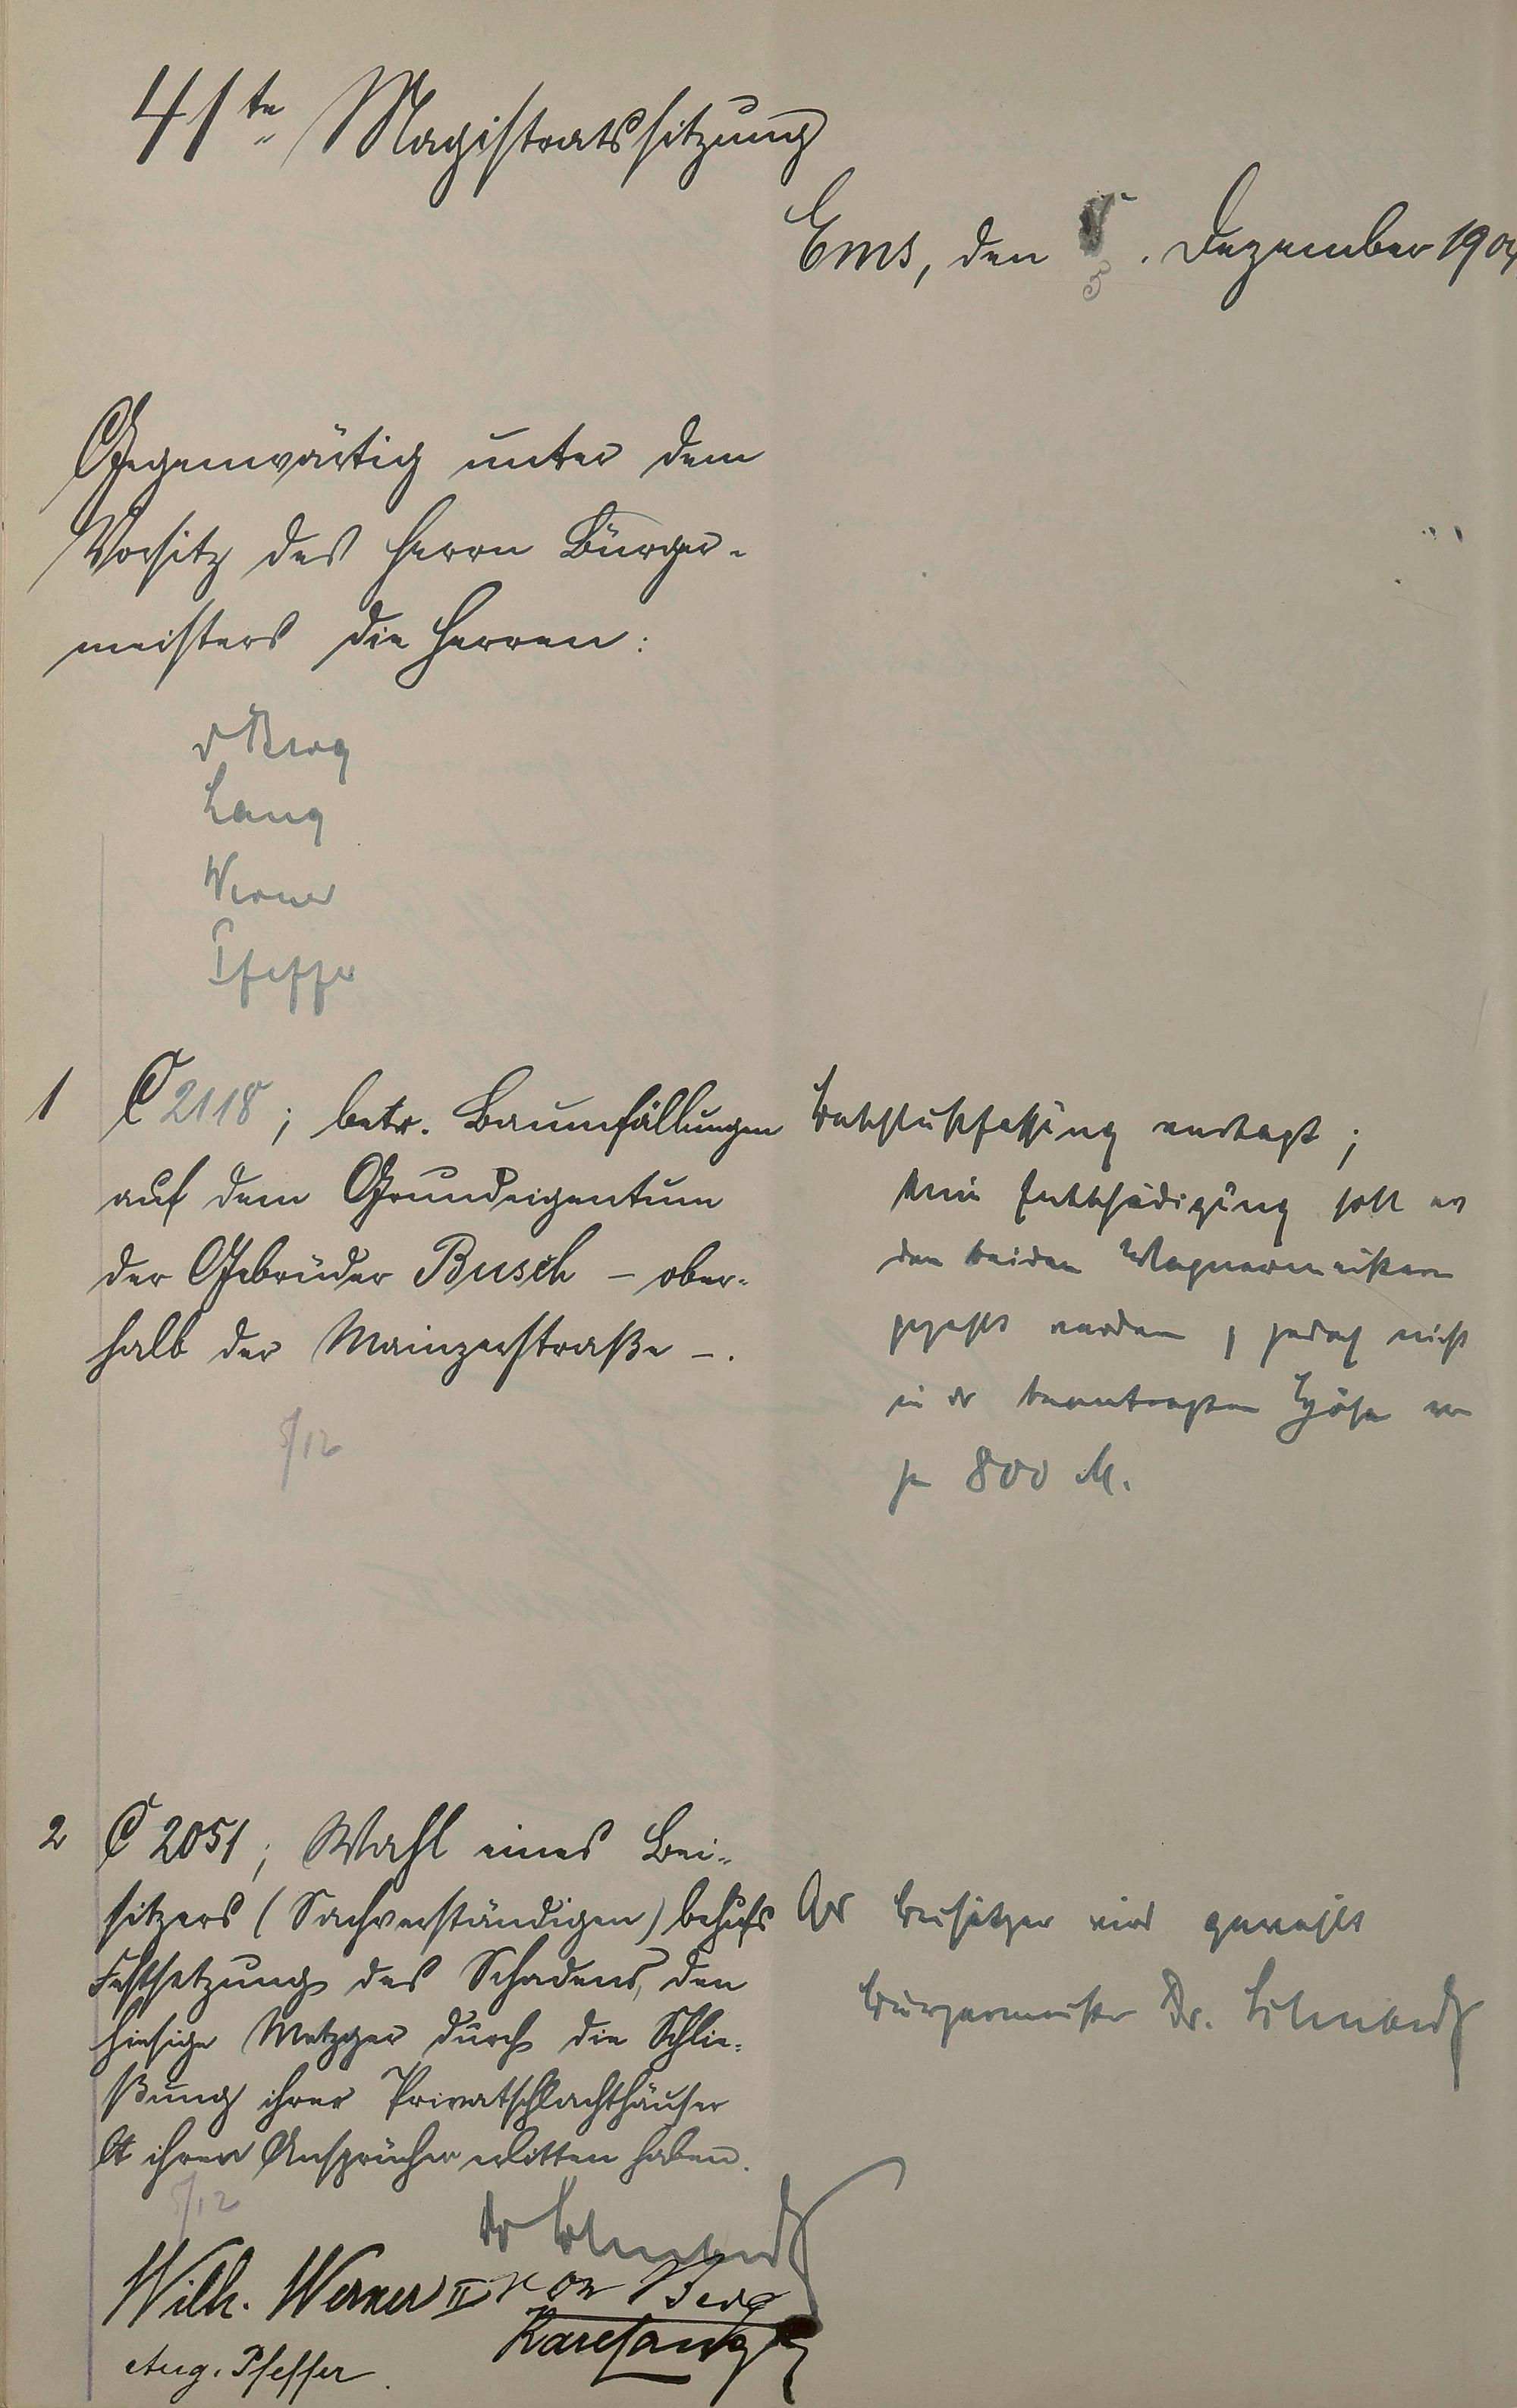 41te Magistratssitzung
Ems, den 5. Dezember 190
Gegenwärtig unter dem
Vorsitz des Herrn Bürger-
meisters die Herren:
v Berg
Lang
Werner
Pfeffer
1 C 2118; betr. Baumfällungen
auf dem Grundeigentum
der Gebrüder Busch – ober-
halb der Mainzerstraße –.
5/12
Beschlußfassung vertagt;
Entschädigung soll an
den beiden Wagnermeistern
gezahlt werden, jedoch nicht
in der beantragten Höhe von
je 800 M.
2 C 2051; Wahl eines Bei-
sitzers (Sachverständigen) behufs
Festsetzung des Schadens, den
hiesige Metzger durch die Schlie-
ßung ihrer Privatschlachthäuser
lt ihren Ansprüchen erlitten haben.
5/12
Als Beisitzer wird gewählt
Bürgermeister Dr. Schubert
Dr Schubert
Wilh. Werner II von Berg
Karl Lang
Aug. Pfeffer.